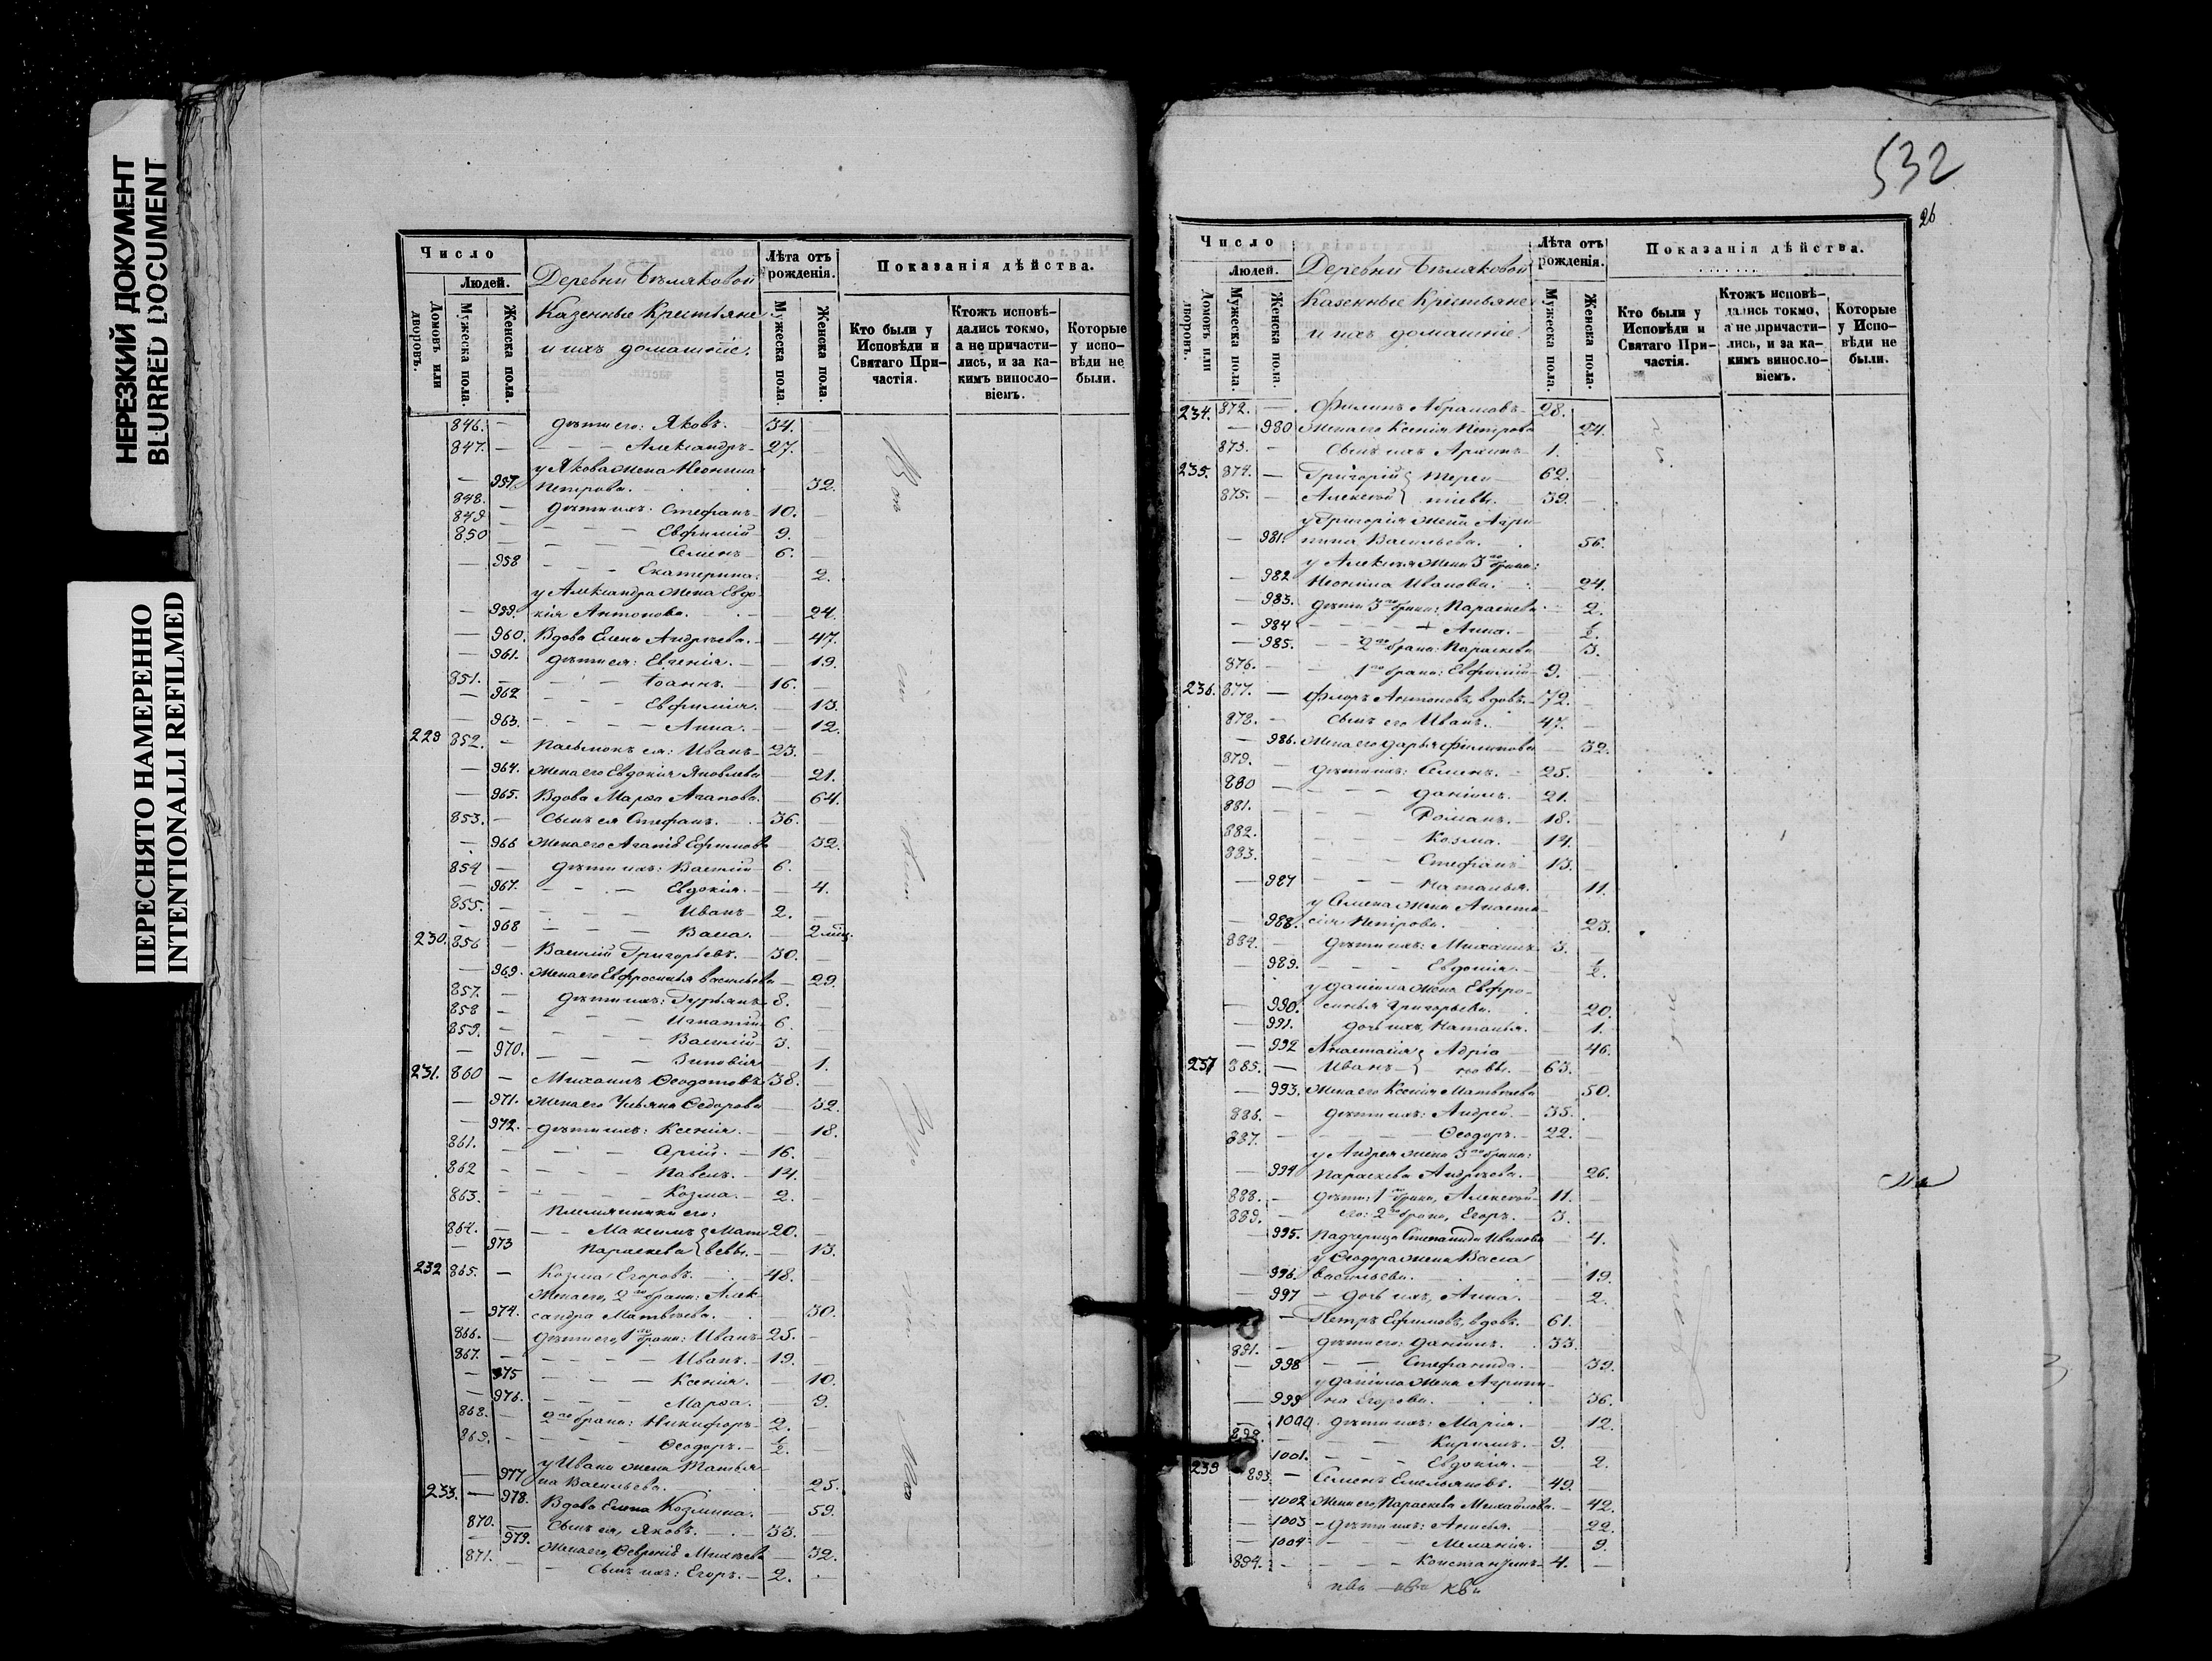 НЕРЕЗКИЙ ДОКУМЕНТ
BLURRED DOCUMENT
ПЕРЕСНЯТО НАМЕРЕННО
INTENTIONALLI REFILMED
Число
Людей.
Домовъ или дворовъ.
Мужеска пола.
Женска пола.
Деревни Бѣляковой
Казенные Крестьяне
и ихъ домашніе.
Лѣта отъ рожденія.
Мужеска пола.
Женска пола.
Показанія дѣйства.
Кто были у Исповѣди и Святаго Причастія.
Ктожъ исповѣ-
дались токмо,
а не причасти-
лись, и за ка-
кимъ виносло-
віемъ.
Которые
у испо-
вѣди не
были.
846. — дѣти его: Яковъ. — 34. —
847. — Александръ — 27. —
у Якова жена Неонила
— 957. Петрова. — 32.
848. — дѣти ихъ: Стефанъ — 10. —
849 — Евфимій — 9. —
850 — Семенъ — 6. —
— 958 Екатерина. — 2.
у Александра жена Евдо-
— 959. кія Антонова. — 24.
— 960. Вдова Елена Андреева. — 47.
— 961. дѣти ея: Евгенія. — 19.
851. — Іоаннъ. — 16. —
— 962 Евфимія. — 13.
— 963. Анна. — 12.
229 852. — Пасынокъ ея: Иванъ — 23. —
— 964. Жена его Евдокія Яковлева — 21.
— 965. Вдова Марѳа Агапова. — 64.
853. — Сынъ ея Стефанъ. — 36. —
966 Жена его Агапія Ефимова — 32.
854 — дѣти ихъ: Василій — 6. —
— 967. Евдокія. — 4.
855. — Иванъ — 2. —
— 968 Васса. — 2 мѣс.
230. 856 — Василій Григорьевъ. — 30. —
— 969. Жена его Евфросинья Васильева — 29.
857. — дѣти ихъ: Гурьянъ — 8. —
858 — Игнатій — 6. —
859. — Василій — 3. —
— 970. Зиновія — 1.
231. 860 — Михаилъ Ѳеодотовъ 38. —
— 971. Жена его Ульяна Ѳедорова — 32.
— 972. — дѣти ихъ: Ксенія. — 18.
861. — 16. —
862 — Павелъ. — 14. —
863. — Козма. — 2. —
Племянники его:
864. — Максимъ } Мат 20. —
— 973 Параскева } вѣевы. — 13.
232 865. — Козма Егоровъ. — 48. —
Жена его, 2го брака: Алек-
— 974. сандра Матвѣева. — 30.
866. — дѣти его, 1го брака: Иванъ — 25. —
867. — Иванъ. — 19. —
— 975 Ксенія. — 10.
— 976. Марѳа. — 9.
868. — 2го брака: Никифоръ — 2. —
869. — Ѳеодоръ. — ½. —
у Ивана жена Татья-
— 977 на Васильева. — 25.
233. — 978. Вдова Елена Козмина. — 59.
870. — Сынъ ея, Яковъ. — 33. —
— 979. Жена его, Ѳевронія — 32.
871. — Сынъ ихъ: Егоръ. — 2. —
532
26
Число
Людей.
Домовъ или дворовъ.
Мужеска пола.
Женска пола.
Деревни Бѣляковой
Казенные Крестьяне
и ихъ домашніе.
Лѣта отъ рожденія.
Мужеска пола.
Женска пола.
Показанія дѣйства.
Кто были у Исповѣди и Святаго Причастія.
Ктожъ исповѣ-
дались токмо,
а не причасти-
лись, и за ка-
кимъ виносло-
віемъ.
Которые
у Испо-
вѣди не
были.
234. 872. — Филипъ Абрамовъ — 28. —
— 980 Жена его Ксенія Петрова — 24.
873. — Сынъ ихъ Архипъ — 1. —
235. 874. — Григорій } Терен — 62. —
875. — Алексѣй } тіевы. — 39. —
у Григорія жена Агри-
— 981. пина Васильева. — 56.
у Алексѣя жена 3го брака:
— 982 Неонила Иванова. — 24.
— 983. дѣти 3го брака: Параскева — 2.
— 984 Анна. — ½.
— 985. 2го брака: Параскева — 3.
876. — 1го брака: Евфимій — 9. —
236. 877. — Флоръ Антоновъ, вдовъ. — 72. —
878. — Сынъ его Иванъ. — 47. —
— 986. Жена его Дарья Филипова — 52.
879. — дѣти ихъ: Семенъ. — 25. —
880 — Даніилъ. — 21. —
881. — Романъ. — 18. —
882. — Козма. — 14. —
883. — Стефанъ — 13. —
— 987 Наталья. — 11.
у Семена жена Анаста-
— 988. сія Петрова. — 23.
884. — дѣти ихъ: Михаилъ 3. —
— 989. Евдокія. — ½.
у Даніила жена Евфро-
— 990. синья Григорьева. — 20.
— 991. дочь ихъ, Наталья. — 1.
— 992 Анастасія } Адріа — 46.
237 885. — Иванъ } новы. — 63. —
— 993. Жена его Ксенія Матвѣева — 50.
886. — дѣти ихъ: Андрей. — 35. —
887. — Ѳеодоръ. — 22. —
у Андрея жена 3го брака:
— 994 Параскева Андреева. — 26.
888. — дѣти: 1го брака, Алексѣй — 11. —
889. — его: 2го брака, Егоръ. — 3. —
— 995. Падчерица Степанида Иванова — 4.
у Ѳеодора жена Васса
— 996. Васильева. — 19.
— 997 — дочь ихъ, Анна. — 2.
— Петръ Ефимовъ, вдовъ. — 61. —
891. — дѣти его: Даніилъ. — 33. —
— 998 Стефанида. — 39.
у Даніила жена Агрипи-
— 999 на Егорова. — 36.
— 1000. дѣти ихъ: Марія. — 12.
892. — Кириллъ. — 9. —
1001. Евдокія. — 2.
239 893. — Семенъ Емельяновъ. — 49. —
— 1002 Жена его, Параскева Михайлова. — 42.
— 1003 — дѣти ихъ: Анисья. — 22.
— 1004 Меланія. — 9.
894. — Константинъ — 4. —